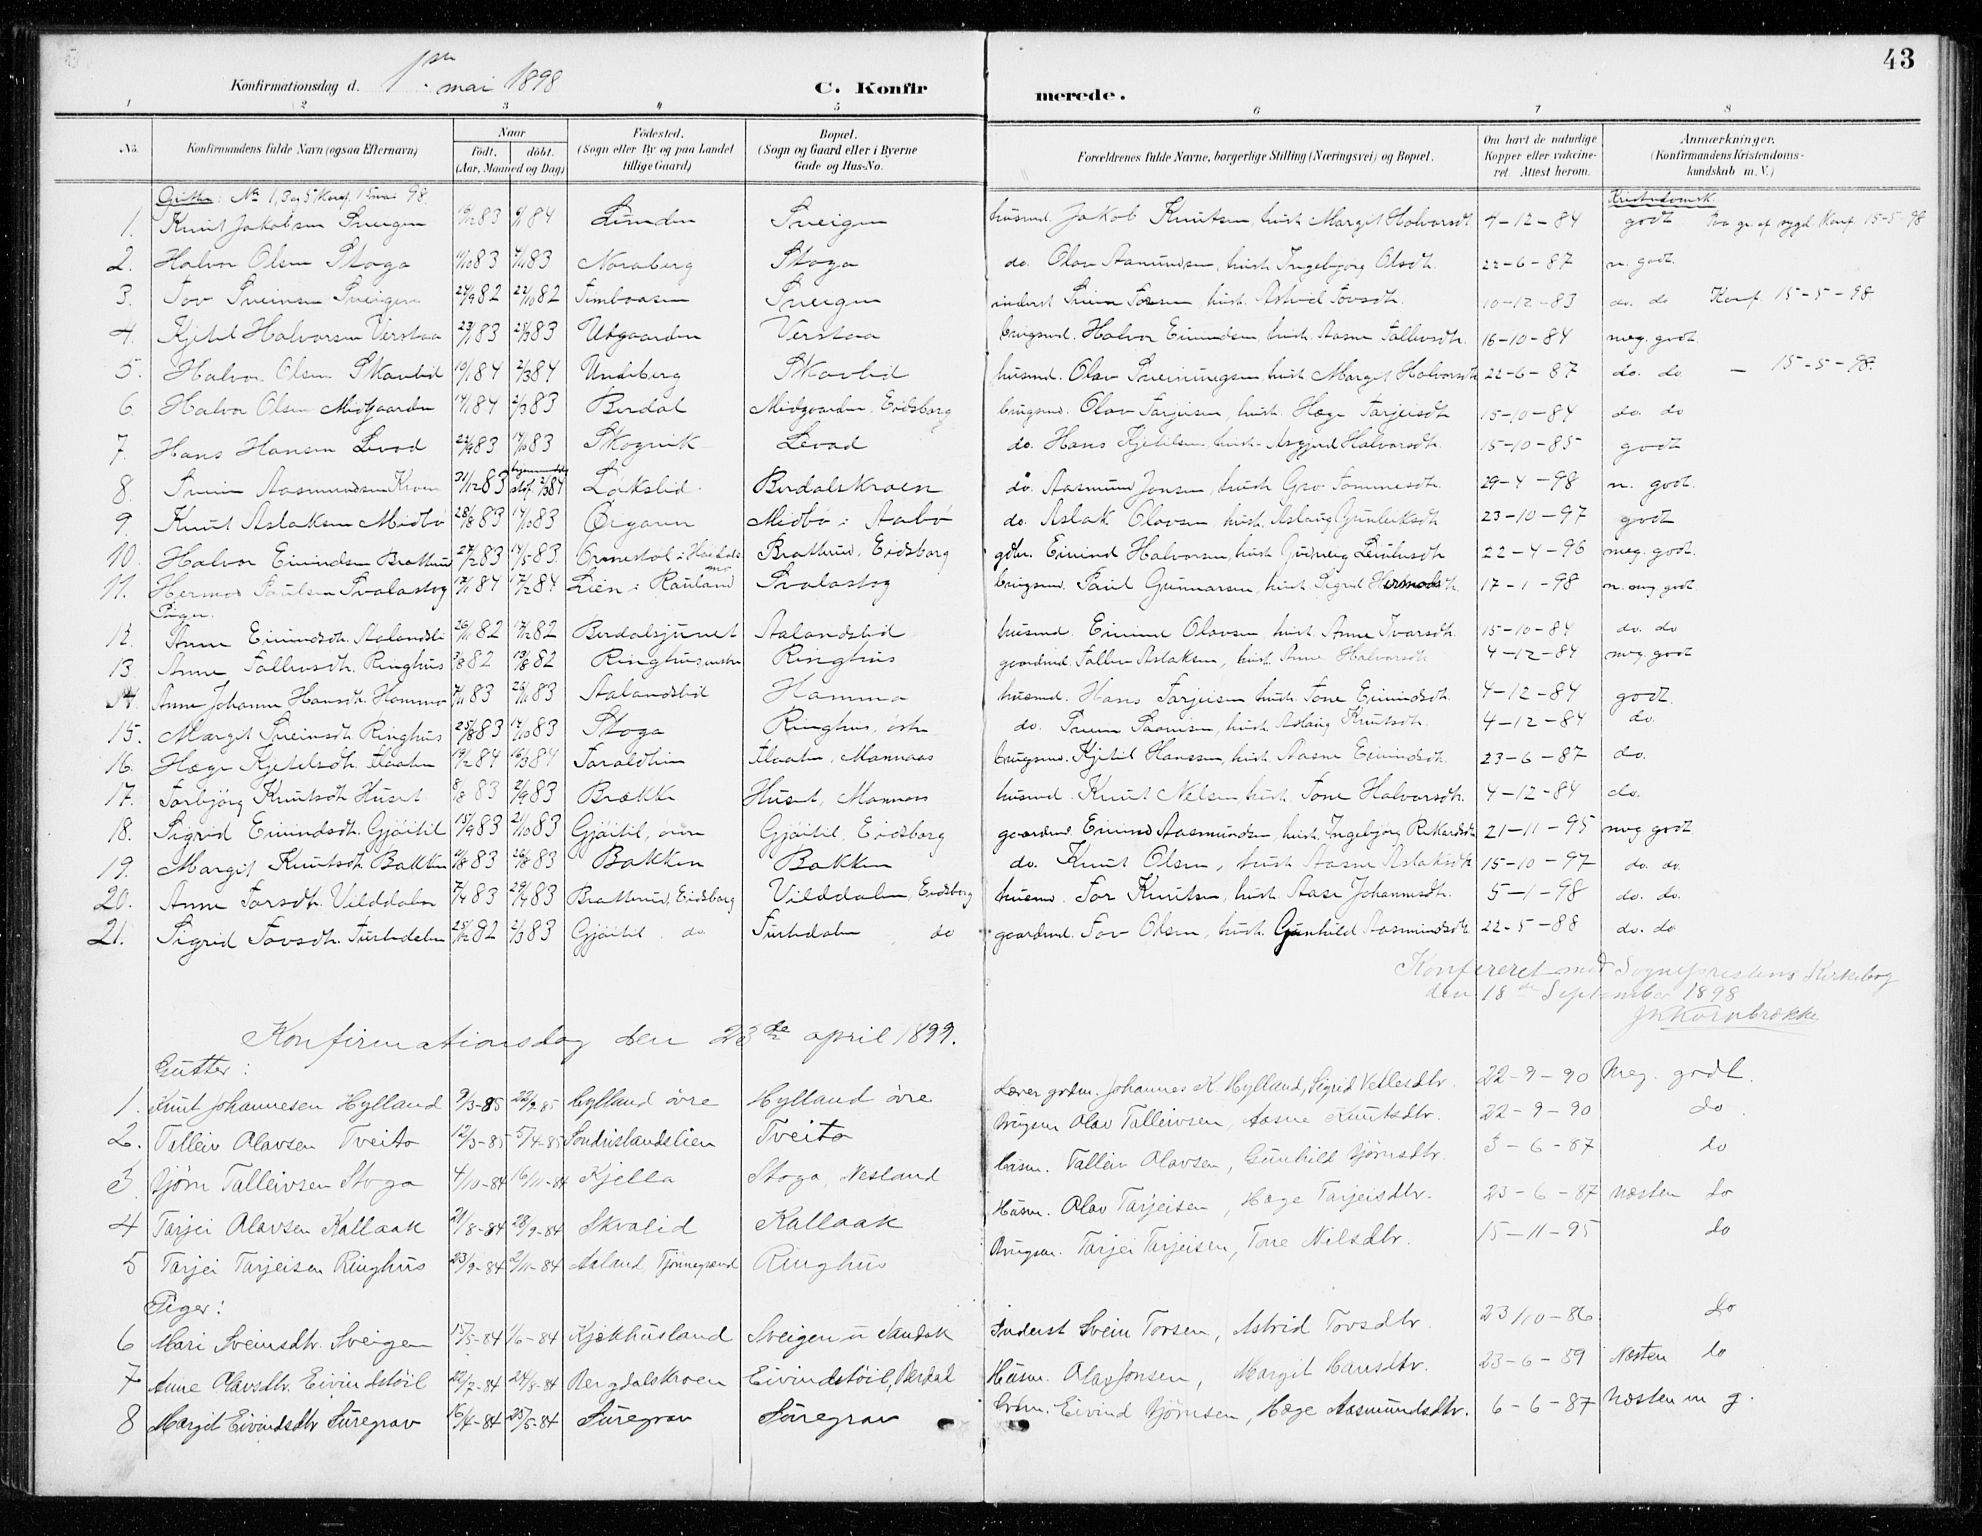 43
Konfirmationsdag d. 1ste mai 1898
C. Konfirmerede.
1 2 3 4 5 6 7 8
No. Konfirmandens fulde Navn (ogsaa Efternavn) Naar født, døbt. (Aar, Maaned og Dag) Fødested. (Sogn eller By og paa Landet tillige Gaard) Bopæl. (Sogn og Gaard eller i Byerne Gade og Hus-No. Forældrenes fulde Navne, borgerlige Stilling (Næringsvei) og Bopæl. Om havt de naturlige Kopper eller vaccineret. Attest herom. Anmærkninger. (Konfirmandens Kristendomskundskab m. V.)
Gutter: No 1, 3 og 5 Konf. 15 mai 98. Kristendomsk.
1. Knut Jakobsen Sveigen 83 84 Lunden Sveigen husmd. Jakob Knutsen, hust. Margit Halvorsdt. 4-12-84 godt Konf. 15-5-98
2. Halvor Olsen Stoga 83 83 Noraberg Stoga do. Olav Aamundsen, hust. Ingebjørg Olsdt. 22-6-87 n. godt.
3. Tov Sveinsen Sveigen 24/9 82 22/10 82 Timboasen Sveigen inderst Svein Torsen, hust. Astrid Tovsdt. 10-12-83 do. do Konf. 15-5-98
4. Kjetil Halvorsen Verstaa 83 83 Utgaarden Verstaa brugsmd. Halvor Eivindsen, hust. Aasne Tallevsdt. 16-10-84 meg. godt.
5. Halvor Olsen Skavlid 19/1 84 2/3 84 Undeberg Skavlid husmd. Olav Sveinungsen, hust. Margit Halvorsdt. 22-6-87 do. do — 15-5-98.
6. Halvor Olsen Midgaarden 84 83 Berdal Midgaarden, Eidsborg brugsmd. Olav Tarjeisen, hust. Hæge Tarjeisdt. 15-10-84 do. do
7. Hans Hansen Levad 83 83 Skogvik Levad do. Hans Kjetilsen, hust. Asgjerd Halvorsdt. 15-10-85 godt
8. Svein Aasmundsen Kroen 31/12 83 84 Lökslid. Berdalskroen do. Aasmund Jonsen, hust. Gro Tommesdt. 29-4-98 n. godt.
9. Knut Aslaksen Midbø 28/8 83 14/10 83 Øigarn Midbø i Aabø do. Aslak Olavsen, hust. Aslaug Gunleiksdt. 23-10-97 godt
10. Halvor Eivindsen Brattrud 83 83. Ormestøl Brattrud, Eidsborg gdbr. Eivind Halvorsen, hust. Gudveig Leivulsdt 22-4-96 meg. godt.
11. Hermod Paulsen Svalastog 84 84 Lien i Rauland Svalastog brugsmd. Paul Gunnarsen, hust. Sigrid Hermodsdt. 17-1-98 n. meg godt.
Piger.
12. Anne Eivindsdt. Aalandsli 82 82 Berdalsjuvet Aalandslid husmd. Eivind Olavsen, hust. Anne Ivarsdt. 15-10-84 do. do
13. Anne Tallevsdt. Ringhus 82 82 Ringhus, vestre Ringhus gaardmd. Tallev Aslaksen, hust. Anne Halvorsdt. 4-12-84 meg. godt
14. Anne Johanne Hansdt. Hommo 83 83 Aalandslid Hommo husmd. Hans Tarjeisen, hust. Tone Eivindsdt. 4-12-84 godt.
15. Margit Sveinsdt. Ringhus 25/8 83 14/10 83 Stoga Ringhus, østre do. Svein hust. Aslaug Knutsdt. 4-12-84 do.
16. Hæge Kjetilsdt. Flaaten 84 84 Taraldlien Flaaten, Mannaas brugsmd. Kjetil Hanssen, hust. Aasne Eivindsdt. 23-6-87 do.
17. Torbjörg Knutsdt. Huset 8/8 83 2/9 83 Brække Huset, Mannaas husmd. Knut Nelsen, hust. Tone Halvorsdt. 4-12-84 do.
18. Sigrid Eivindsdt. Gjøitil 15/9 83 21/10 83 Gjøitil, øvre Gjøitil, Eidsborg gaardmd. Eivind Aasmundsen, hust. Ingebjörg Rikardsdt. 21-11-95 meg godt
19. Margit Knutsdt. Bakken 83 83 Bakken Bakken do. Knut Olsen, hust. Aasne Aslaksdt. 15-10-97 do. do.
20. Anne Torsdt. Vilddalen 83 83 Brattrud, Eidsborg Vilddalen, Eidsborg husmd. Tor Knutsen, hust. Aase Johannesdt. 5-1-98 do. do.
21. Sigrid Tovsdt. Furledalen 82 83 Gjøitil. do Furledalen do gaardmd. Tov Olsen, hust. Gunhild Aasmundsdt 22-5-88 do. do
Konfereret med Sognepræstens Kirkebog
den 18de September 1898
Konfirmationsdag den 23de april 1899.
Gutter:
1. Knut Johannesen Hylland 9/3-85 22/3-85 Hylland övre Hylland övre Lærer gdm. Johannes K. Hylland, Sigrid Vetlesdtr. 22-9-90 Meg. godt.
2. Talleiv Olavsen Tveito 12/3-85 5/4-85 Sondrislandslien Tveito Brugsm Olav Talleivsen, Aasne Knutsdtr. 22-9-90 do
3 Björn Talleivsen Stoga 4/10-84 16/11-84 Kjella Stoga, Nesland Husm. Talleiv Olavsen, Gunhild Björnsdtr. 3-6-87 do
4 Tarjei Olavsen Kallaak 21/8-84 28/9-84 Skvalid Kallaak Husm. Olav Tarjeisen, Hæge Tarjeisdtr. 23-6-87 Næsten do
5 Tarjei Tarjeisen Ringhus 23/9-84 2/11-84 Aaland, Tjönnegrænd Ringhus Brugsm. Tarjei Tarjeisen, Tone Nilsdtr. 15-11-95 do
Piger:
6 Mari Sveinsdtr. Sveigen 15/5-84 1/6-84 Kjækhusland Sveigen u Sandok Inderst Svein Torsen, Astrid Tovsdtr. 23/10-86 do
7 Anne Olavsdtr. Eivindstöil 22/7-84 24/8-84 Bergdalskroen Eivindstöil, Berdal Husm. Olav Jonsen, Margit Hansdtr. 23-6-89 Næsten do
8 Margit Eivindsdtr Suregrav 16/4-84 25/5-84 Suregrav Suregrav Eivind Björnsen, Hæge Aasmundsdtr. 6-6-87 Næsten m g.